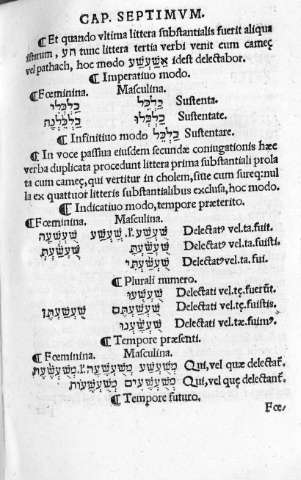 CAP. SEPTIMVM.
¶Et quando vltima littera substantialis fuerit aliqua
istarum, חע, tunc littera tertia verbi venit cum cameç
vel pathach, hoc modo אֶשְׁעֲשַׁע idest delectabor.
¶Imperatiuo modo.
¶Fœminina. Masculina.
כַּלְכְּלִי כַּלְכֵּל Sustenta.
כַּלְכֵּלְנָה כַּלְכְּלוּ Sustentate.
¶Infinitiuo modo כַּלְכֵּל Sustentare.
¶In voce passiua eiusdem secundæ coniugationis hæc
verba duplicata procedunt littera prima substantiali prola
ta cum cameç, qui vertitur in cholem, siue cum sureq: nul
la ex quattuor litteris substantialibus exclusa, hoc modo.
¶Indicatiuo modo, tempore præterito.
¶Fœminina. Masculina.
Delectatꝰ vel. ta. fuit.
Delectatꝰ vel. ta. fuisti.
Delectatꝰ vel. ta. fui.
¶Plurali numero.
Delectati vel. tę. fuerũt.
Delectati vel. tę. fuistis.
Delectati vel. tæ. fuimꝰ.
¶Tempore præsenti.
¶Fœminina. Masculina.
Qui, vel quæ delectat̃.
Qui, vel quę delectant̃.
¶Tempore futuro.
Fœ-